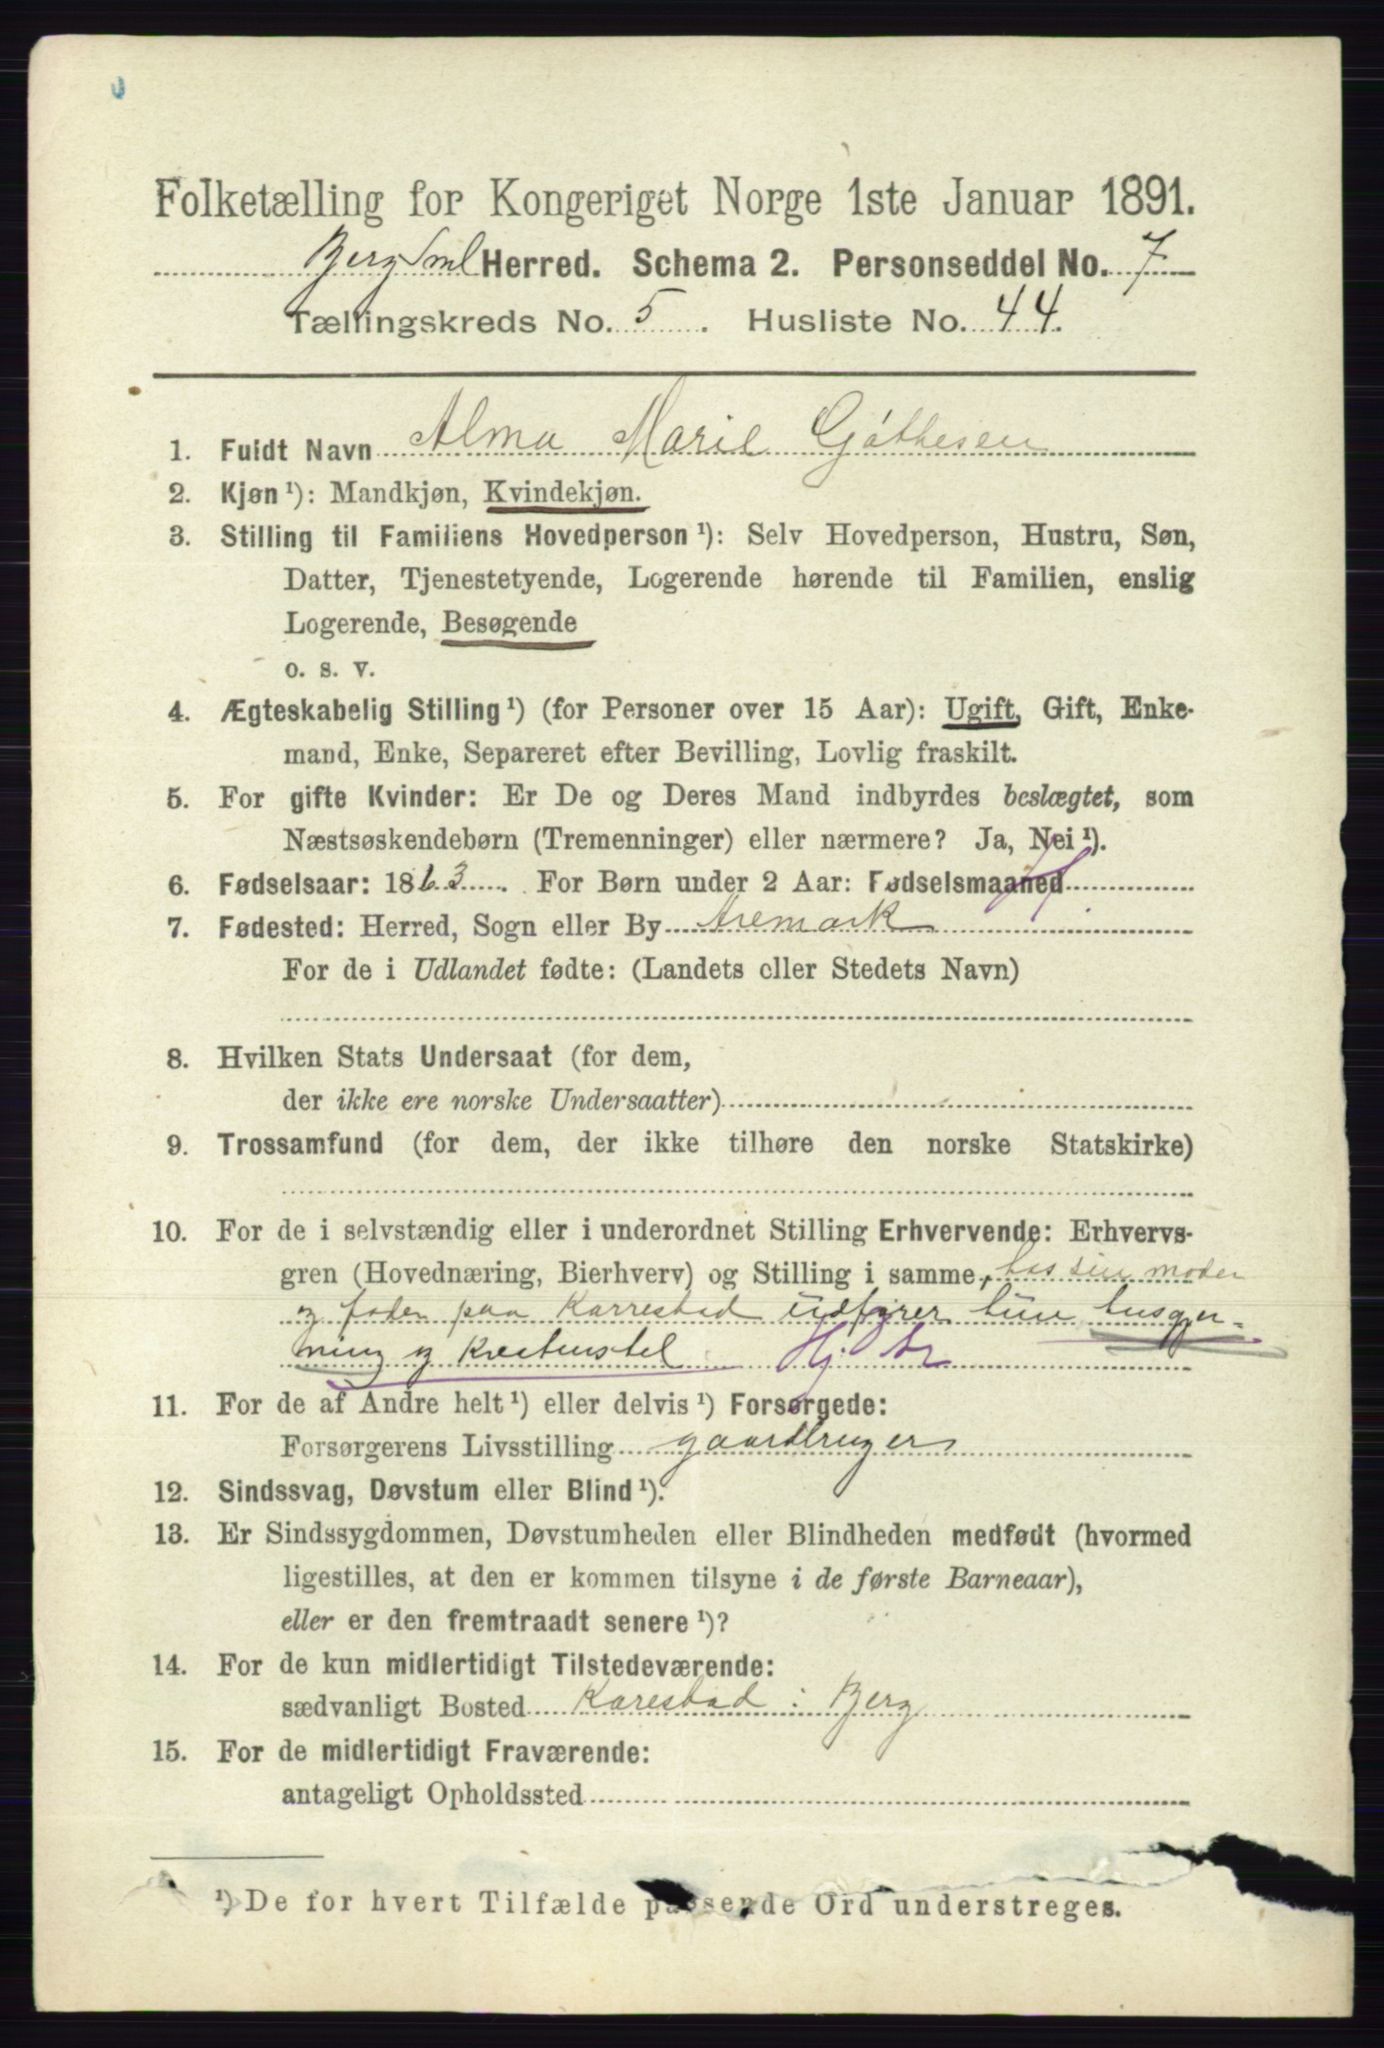 Folketælling for Kongeriget Norge 1ste Januar 1891.
Berg Sml Herred. Schema 2. Personseddel No. 7
Tællingskreds No. 5. Husliste No. 44.
1. Fuldt Navn Alma Marie Gøthesen
2. Kjøn ¹): Mandkjøn, Kvindekjøn.
3. Stilling til Familiens Hovedperson ¹): Selv Hovedperson, Hustru, Søn,
Datter, Tjenestetyende, Logerende hørende til Familien, enslig
Logerende, Besøgende
o. s. v.
4. Ægteskabelig Stilling ¹) (for Personer over 15 Aar): Ugift, Gift, Enke-
mand, Enke, Separeret efter Bevilling, Lovlig fraskilt.
5. For gifte Kvinder: Er De og Deres Mand indbyrdes beslægtet, som
Næstsøskendebørn (Tremenninger) eller nærmere? Ja, Nei ¹).
6. Fødselsaar: 1863. For Børn under 2 Aar: Fødselsmaaned
7. Fødested: Herred, Sogn eller By Aremark
For de i Udlandet fødte: (Landets eller Stedets Navn)
8. Hvilken Stats Undersaat (for dem,
der ikke ere norske Undersaatter)
9. Trossamfund (for dem, der ikke tilhøre den norske Statskirke)
10. For de i selvstændig eller i underordnet Stilling Erhvervende: Erhvervs-
gren (Hovednæring, Bierhverv) og Stilling i samme, hos sin moder
og fader paa Karrestad udfører hun husgjer-
ning og Kreaturstel
11. For de af Andre helt ¹) eller delvis ¹) Forsørgede:
Forsørgerens Livsstilling gaardbruger
12. Sindssvag, Døvstum eller Blind ¹).
13. Er Sindssygdommen, Døvstumheden eller Blindheden medfødt (hvormed
ligestilles, at den er kommen tilsyne i de første Barneaar),
eller er den fremtraadt senere ¹)?
14. For de kun midlertidigt Tilstedeværende:
sædvanligt Bosted Karestad i Berg
15. For de midlertidigt Fraværende:
antageligt Opholdssted
¹) De for hvert Tilfælde passende Ord understreges.